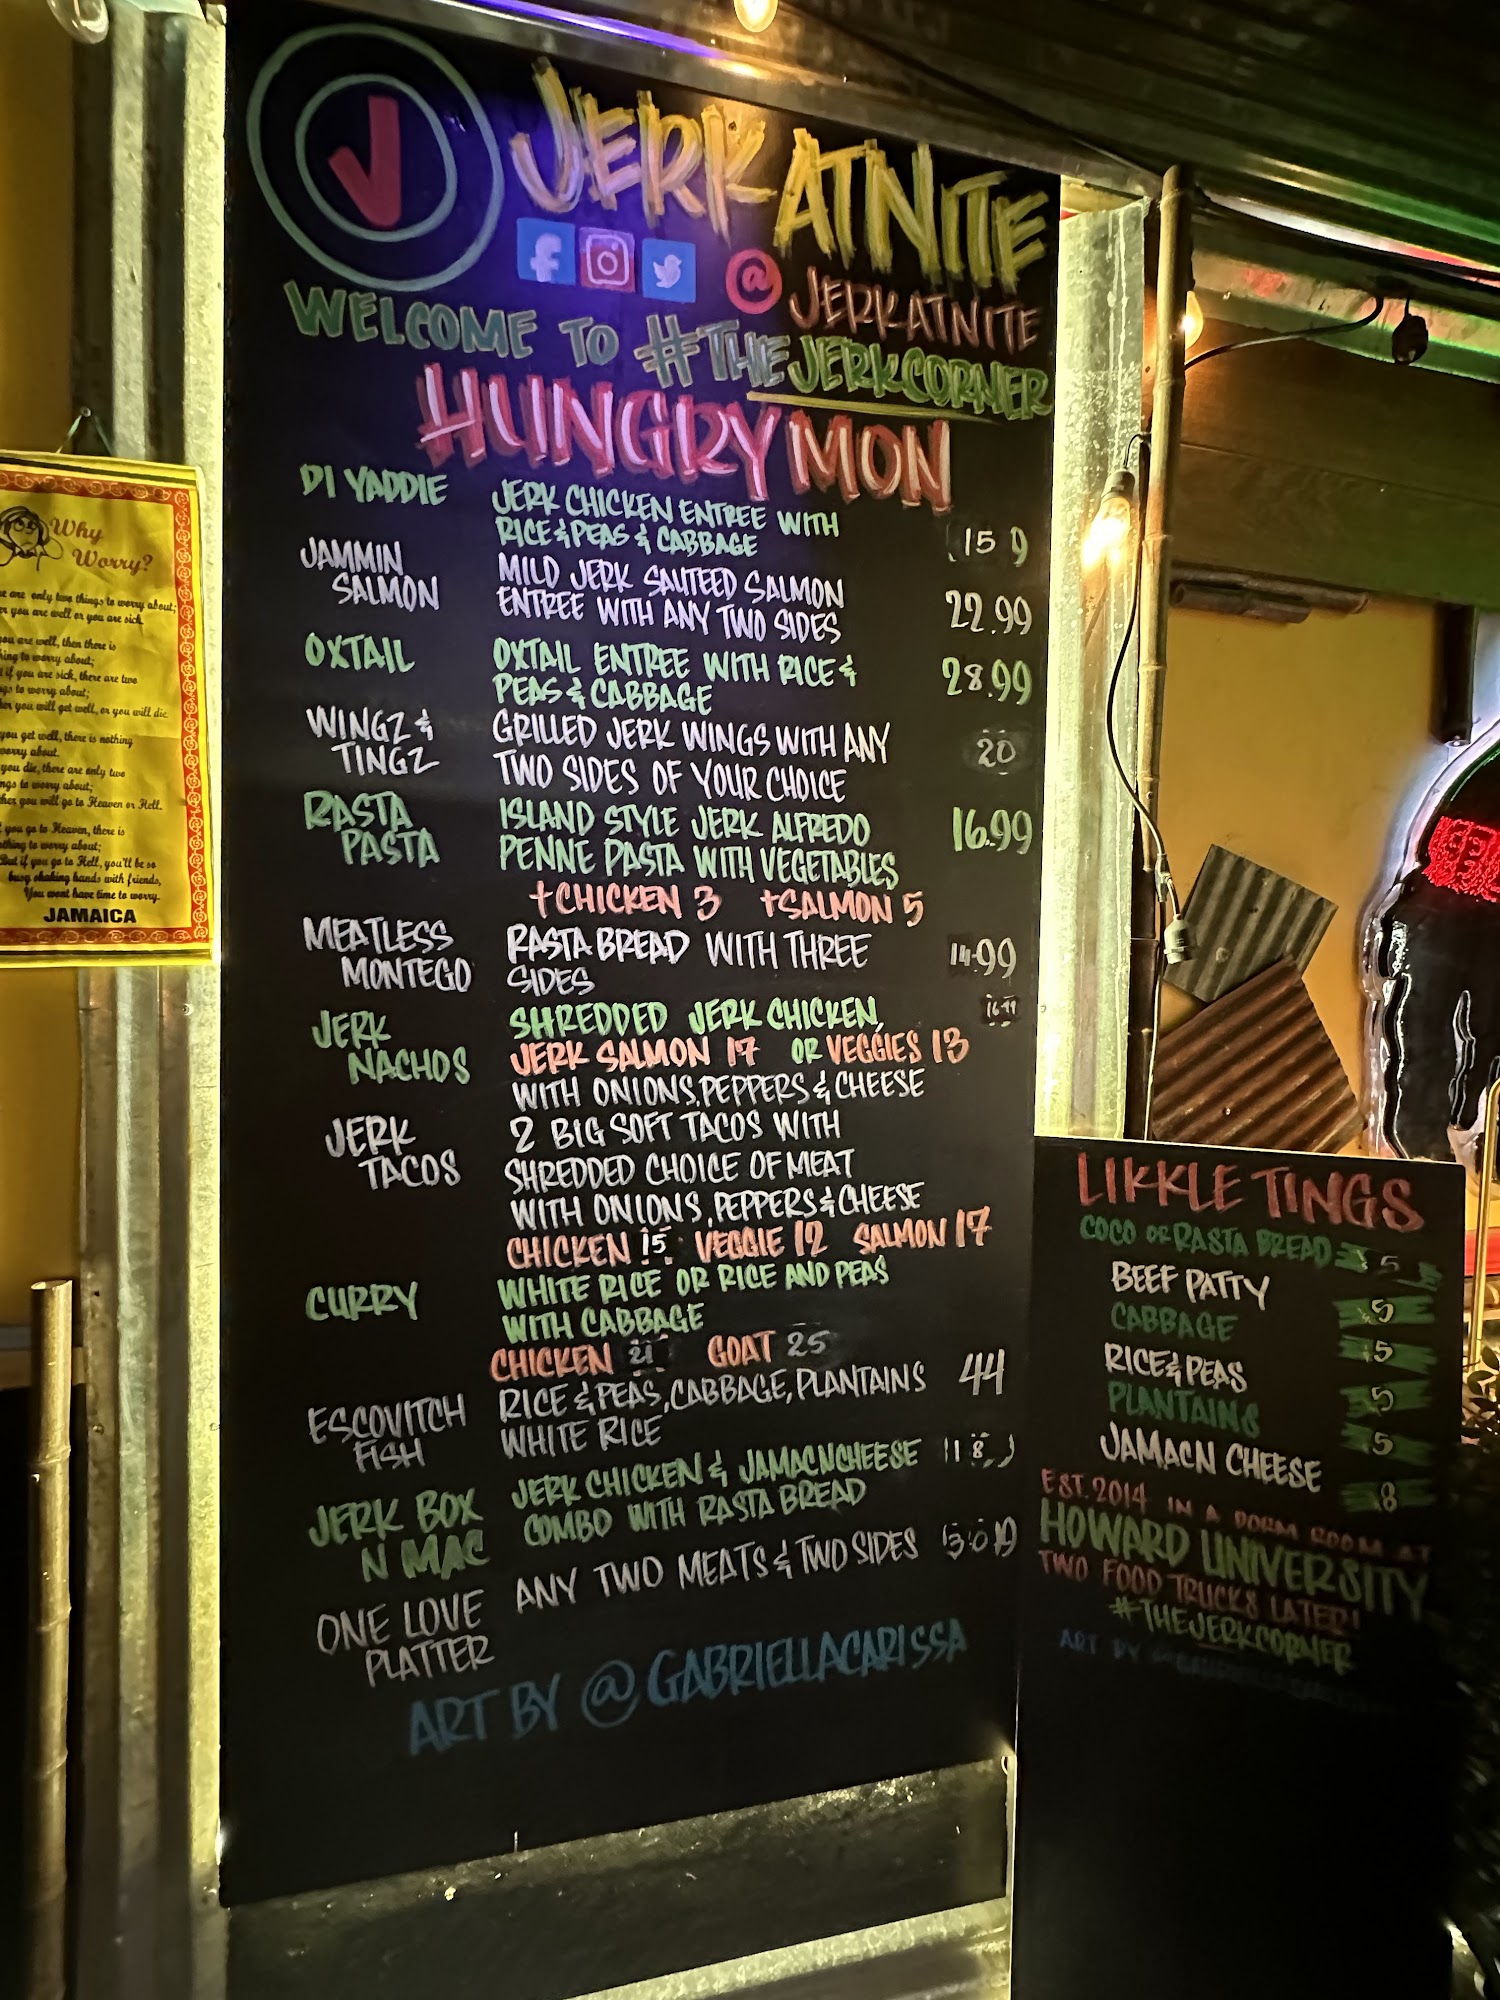 JERKATNITE
@JERKATNITE
WELCOME TO #THEJERKCORNER
HUNGRY MON
DI YADDIE JERK CHICKEN ENTREE WITH
RICE & PEAS & CABBAGE 15
JAMMIN MILD JERK SAUTEED SALMON
SALMON ENTREE WITH ANY TWO SIDES 22.99
OXTAIL OXTAIL ENTREE WITH RICE & 28.99
PEAS & CABBAGE
WINGZ & GRILLED JERK WINGS WITH ANY 20
TINGZ TWO SIDES OF YOUR CHOICE
RASTA ISLAND STYLE JERK ALFREDO 16.99
PASTA PENNE PASTA WITH VEGETABLES
+CHICKEN 3 +SALMON 5
MEATLESS RASTA BREAD WITH THREE 14.99
MONTEGO SIDES
JERK SHREDDED JERK CHICKEN, 16.99
NACHOS JERK SALMON 17 OR VEGGIES 13
WITH ONIONS, PEPPERS & CHEESE
JERK 2 BIG SOFT TACOS WITH
TACOS SHREDDED CHOICE OF MEAT
WITH ONIONS, PEPPERS & CHEESE
CHICKEN 15 VEGGIE 12 SALMON 17
CURRY WHITE RICE OR RICE AND PEAS
WITH CABBAGE
CHICKEN 21 GOAT 25
ESCOVITCH RICE & PEAS, CABBAGE, PLANTAINS 44
FISH WHITE RICE
JERK BOX JERK CHICKEN & JAMACNCHEESE 18
N MAC COMBO WITH RASTA BREAD
ONE LOVE ANY TWO MEATS & TWO SIDES 30
PLATTER
ART BY @GABRIELLACARISSA
LIKKLE TINGS
COCO OR RASTA BREAD 5
BEEF PATTY 5
CABBAGE 5
RICE & PEAS 5
PLANTAINS 5
JAMACN CHEESE 8
EST. 2014 IN A DORM ROOM AT
HOWARD UNIVERSITY
TWO FOOD TRUCKS LATER!
#THEJERKCORNER
ART BY
Why
Worry?
are only two things to worry about;
you are well or you are sick.
you are well, then there is
to worry about;
if you are sick, there are two
to worry about;
you will get well, or you will die.
you get well, there is nothing
worry about.
you die, there are only two
to worry about;
you will go to Heaven or Hell.
you go to Heaven, there is
to worry about;
But if you go to Hell, you'll be so
busy shaking hands with friends,
You wont have time to worry.
JAMAICA